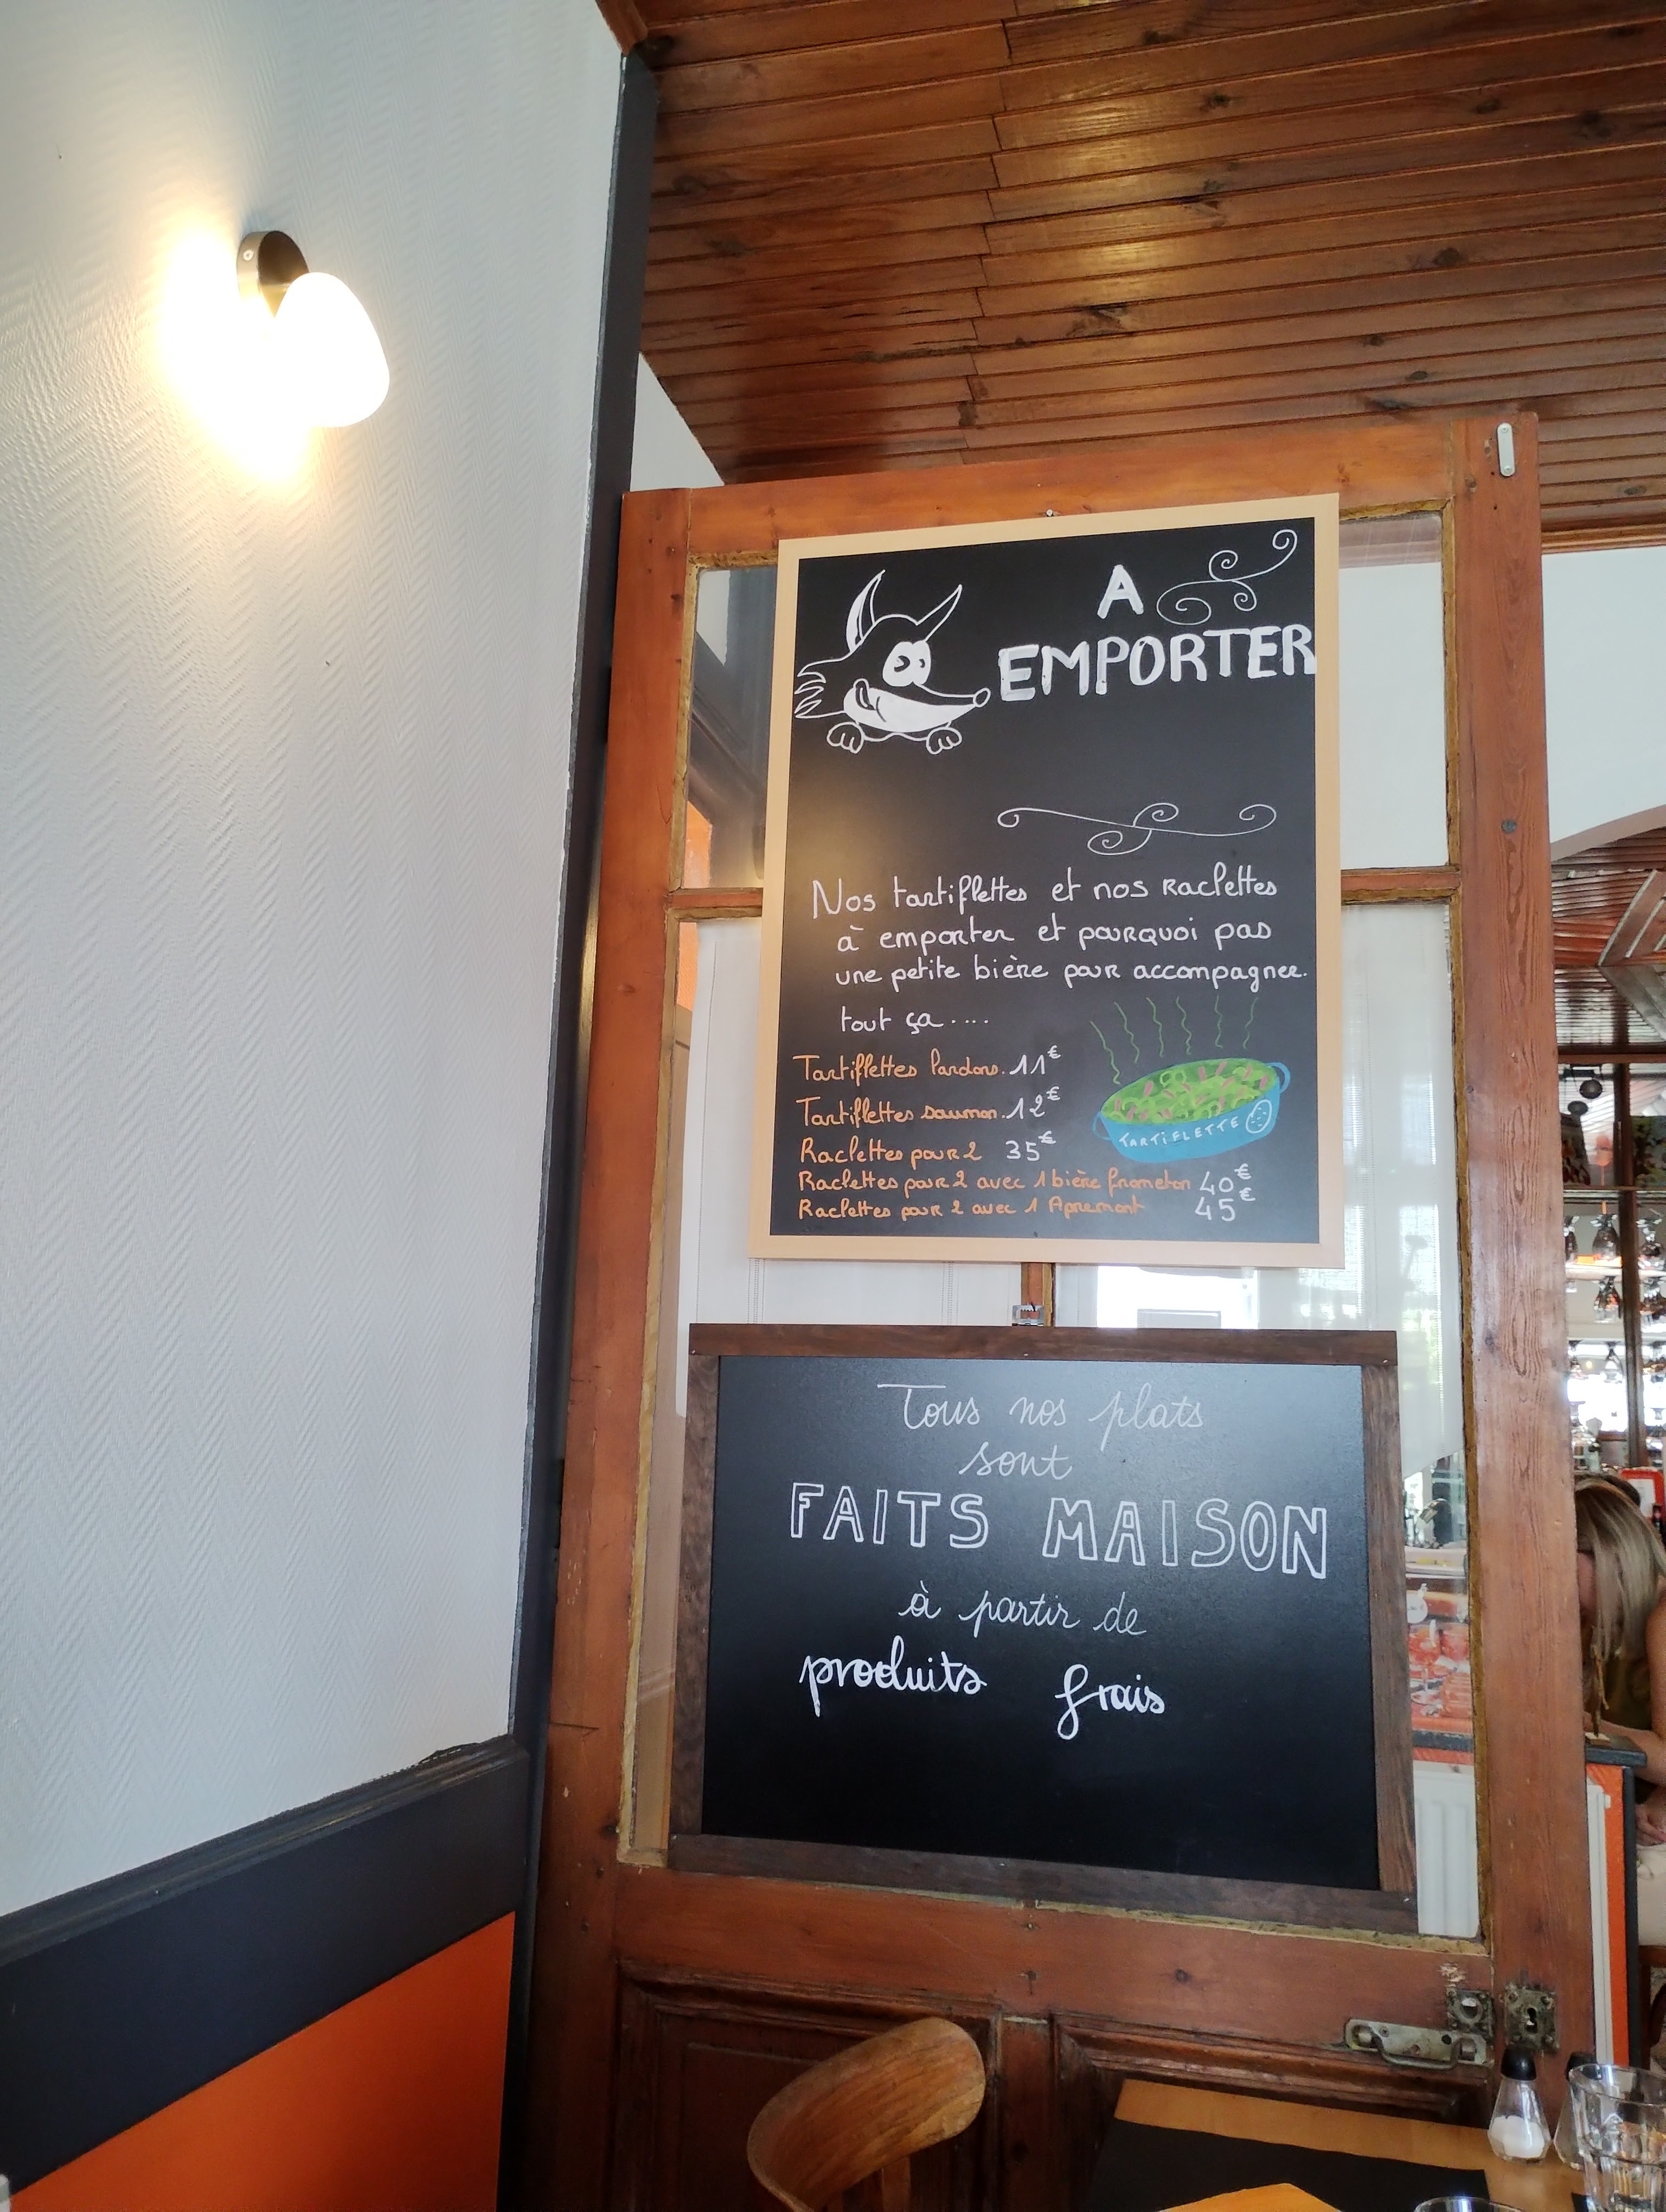 A
EMPORTER
Nos tartiflettes et nos Raclettes
à emporter et pourquoi pas
une petite bière pour accompagner.
tout ça....
Tartiflettes lardons. 11€
Tartiflettes saumon. 12€
Raclettes pour 2 35€
Raclettes pour 2 avec 1 bière frometon 40€
Raclettes pour 2 avec 1 Apremont 45€
TARTIFLETTE
Tous nos plats
sont
FAITS MAISON
à partir de
produits frais